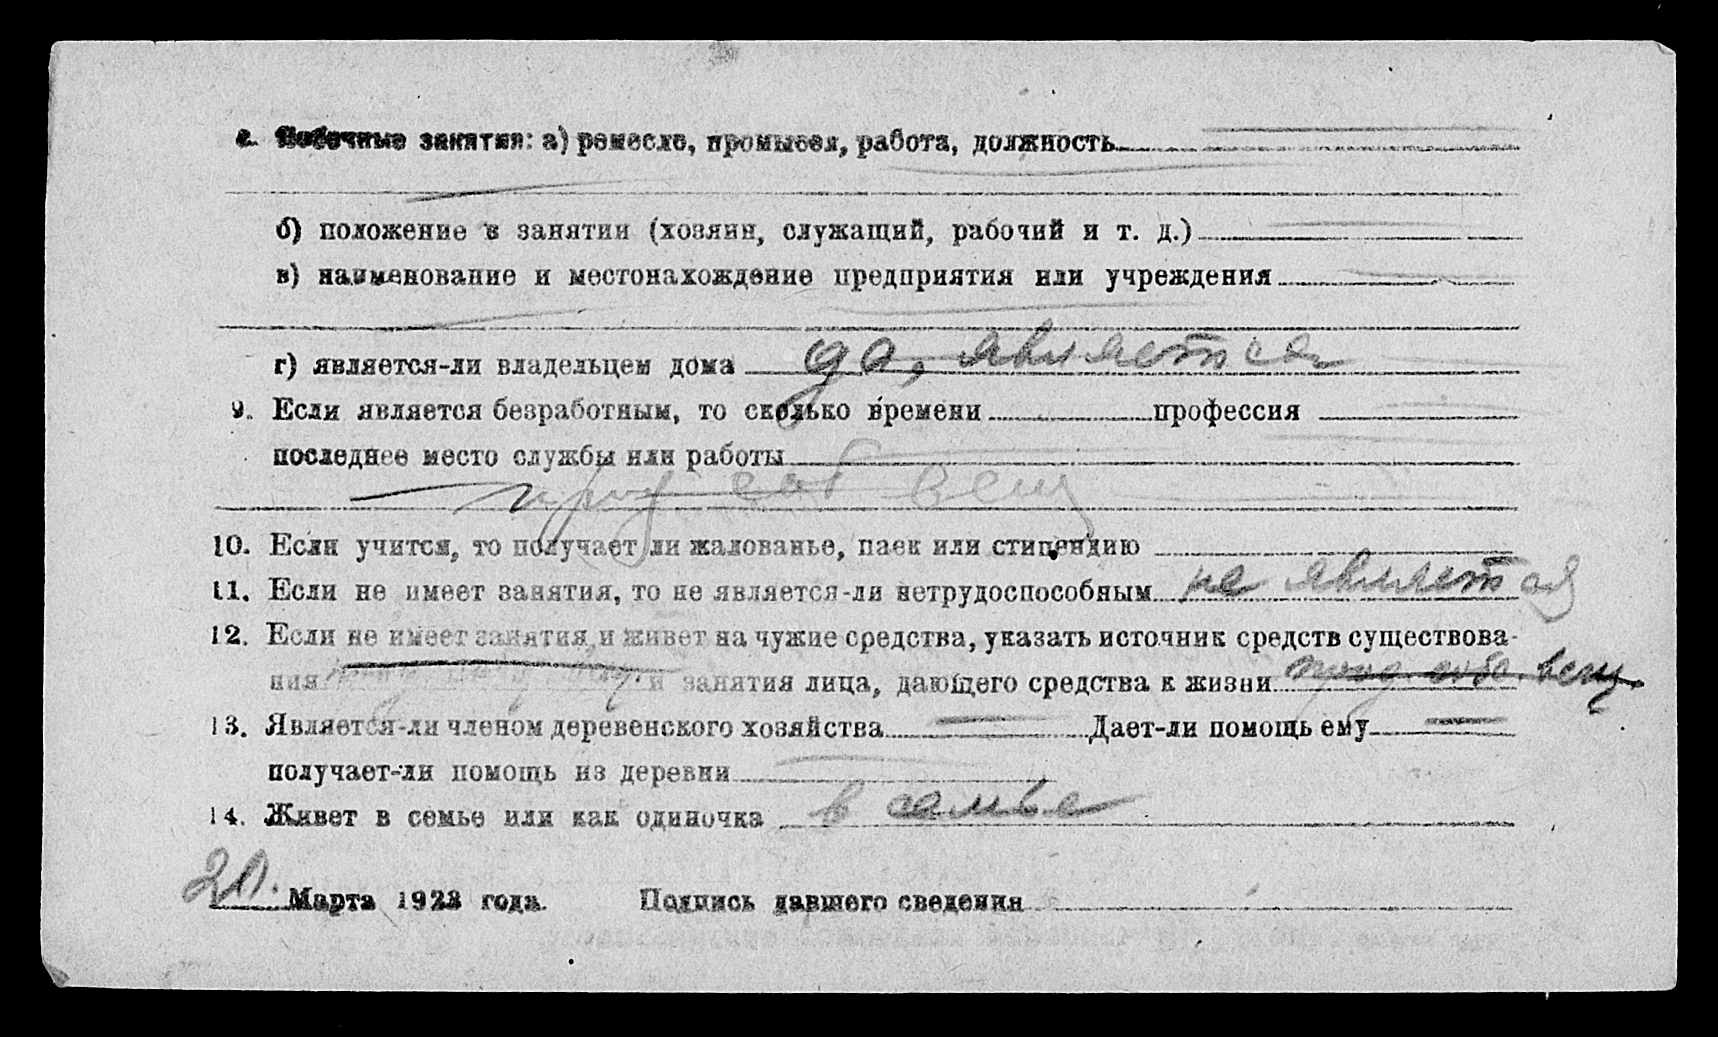 Побочные занятия: а) ремесло, промысел, работа, должность
б) положение в занятии (хозяин, служащий, рабочий и т. д.)
в) наименование и местонахождение предприятия или учреждения
г) является-ли владельцем дома да, является
9. Если является безработным, то сколько времени профессия
последнее место службы или работы
прод соб вещ
10. Если учится, то получает ли жалованье, паек или стипендию
11. Если не имеет занятия, то не является-ли нетрудоспособным не является
12. Если не имеет занятия и живет на чужие средства, указать источник средств существова-
ния и занятия лица, дающего средства к жизни прод. собс. вещ.
13. Является-ли членом деревенского хозяйства Дает-ли помощь ему
получает-ли помощь из деревни
14. Живет в семье или как одиночка в семье
20 Марта 1923 года. Подпись давшего сведения